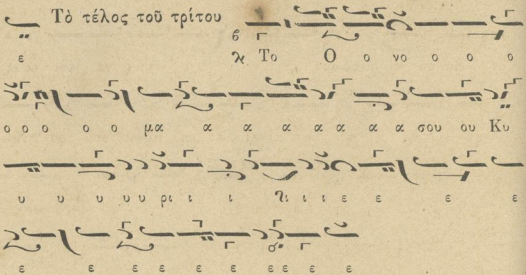 Τὸ τέλος τοῦ τρίτου
ε Το Ο ο νο ο ο ο
ο ο ο ο ο μα α α α α α α α σου ου Κυ
υ υ υ υ υ ρι ι ι ι ι ι ε ε ε ε
ε ε ε ε ε ε ε ε ε ε